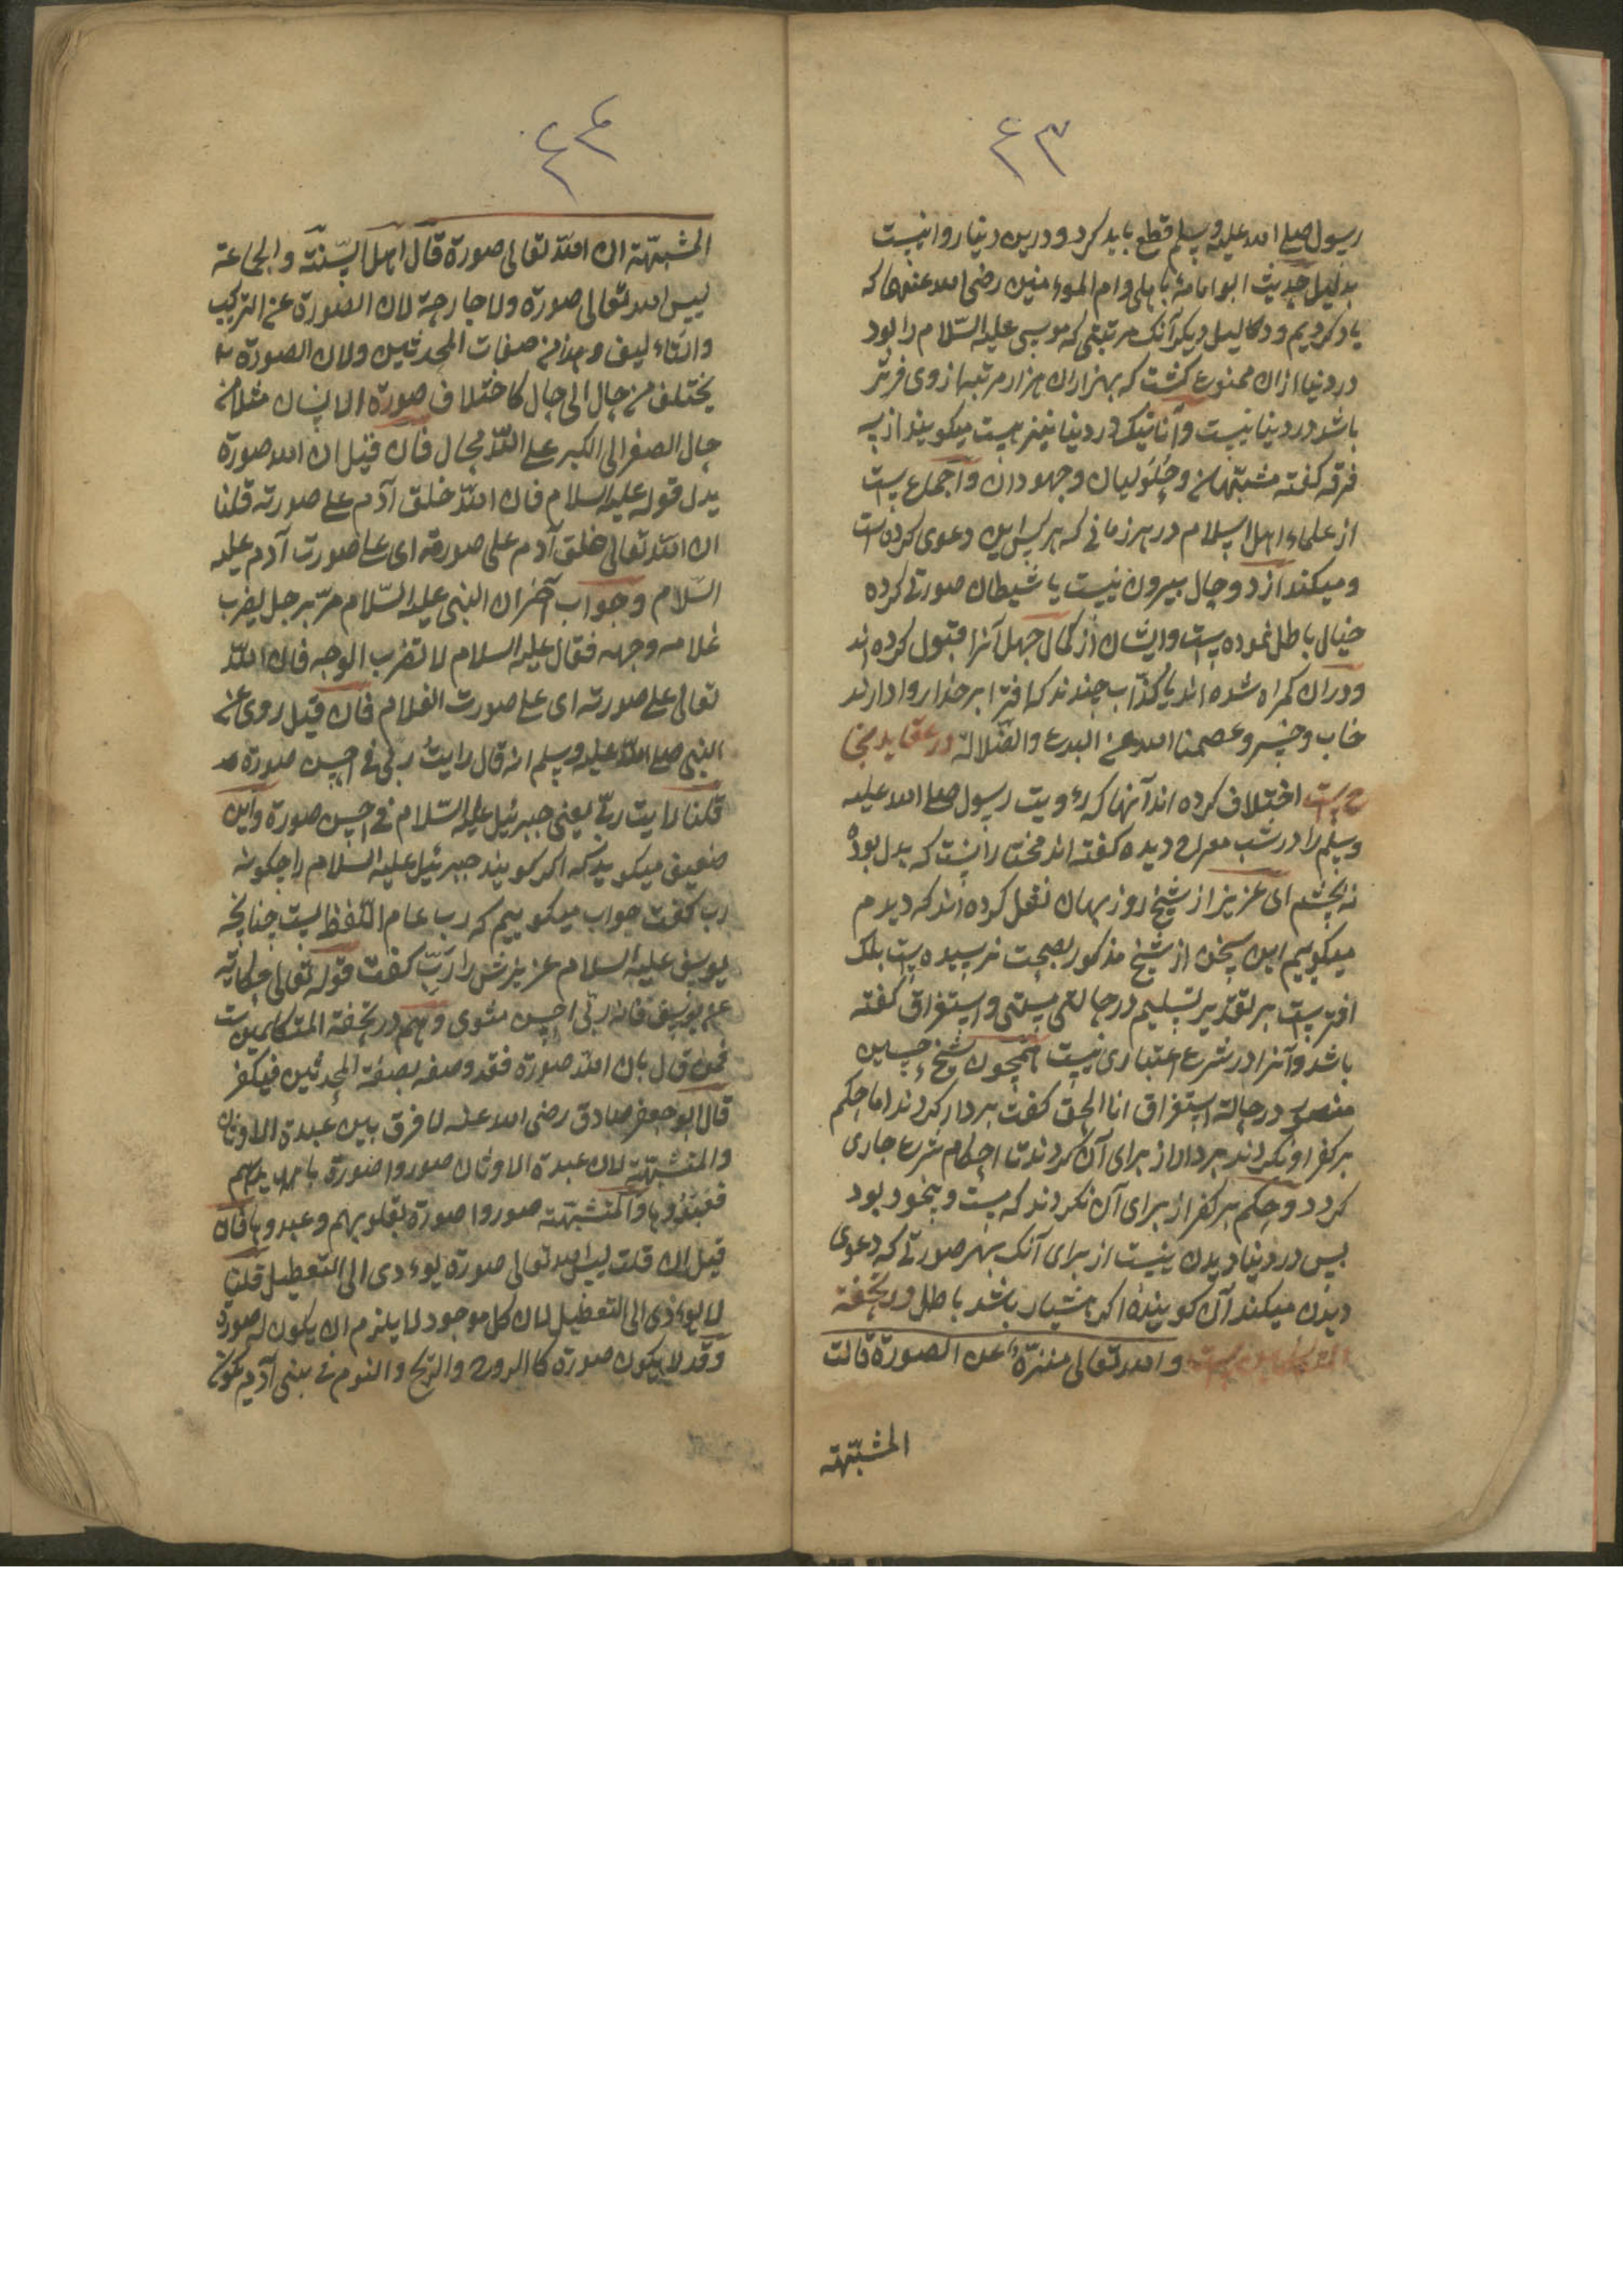 ٤٣
رسول صلے الله علیه وسلم قطع باید کرد و درین دنیا روا نیست
بدلیل حدیث ابو امامهٔ باهلی و ام الموءمنین رضی الله عنهما که
یاد کردیم و دلیل دیگر آنک مرتبتی که موسی علیه السّلام را بود
در دنیا ازان ممنوع گشت که بهزاران هزار مرتبه از وی فرتر
باشد در دنیا نیست و آنانیک در دنیا نیز هست میگویند از سه
فرقه گفته مشبّهان و حُلولیان و جهودان و اجماع است
از علماء اهل اسلام در هر زمانی که هر کس این دعوی کرده است
و میکند از دو حال بیرون نیست یا شیطان صورتی کرده
خیال باطل نموده است و ایشان از کمال جهل آنرا قبول کرده اند
و دران گمراه شده اند یا کذّاب چندند که افترا بر خدا روا دارند
خاب و خسر و عصمنا الله عن البدع والضّلالة در عقاید نجا
ح است اختلاف کرده اند آنها که رءویت رسول صلے الله علیه
وسلم را در شب معراج دیده گفته اند مختار انست که بدل بوده
نه بچشم ای عزیز از شیخ روزبهان نقل کرده اند که دیدم
میگوییم این سخن از شیخ مذکور بصحت نرسیده است بلک
افتر است بر تقدیر تسلیم در حالتی مستی و استغراق گفته
باشد و آنرا در شرع اعتباری نیست همچون شیخ حسین
منصور در حالة استغراق انا الحق گفت بر دار کردند اما حکم
بر کفر او نکردند بر دار از برای آن کردند تا احکام شرع جاری
گردد و حکم بر کفر از برای آن نکردند که مست و بیخود بود
پس در دنیا دیدن نیست از برای آنک بهر صورتی که دعوی
دیدن میکند آن گوینده اگر هشیار باشد باطل و در تحفة
المتکلمین است والله تعالی منزّهٌ عن الصورة قالت
المشبّهة
٤٤
المشبّهة ان الله تعالی صورة قال اهل السّنّة والجماعة
لیس لله تعالی صورة ولا جارحة لان الصّورة عن الترکیب
والتاءلیف وهذا من صفات المحدثین ولان الصورة
یختلف من حال الی حال کاختلاف صورة الانسان مثلا من
حال الصغر الی الکبر علی اللّه محال فان قیل ان الله صورة
یدل قوله علیه السلام فان اللّه خلق آدم علے صورته قلنا
ان الله تعالی خلق آدم علی صورته ای علے صورت آدم علیه
السّلام وجواب آخر ان النبی علیه السّلام مرّ برجل یضرب
غلامه وجهه فقال علیه السلام لا تضرب الوجه فان اللّه
تعالی علے صورته ای علے صورت الغلام فان قیل روی عن
النبی صلے اللّه علیه وسلم انه قال رایتُ ربّی فی احسن صورة
قلنا رایت ربّی یعنی جبرئیل علیه السّلام فی احسن صورة و این
ضعیف میگوید که اگر گویند جبرئیل علیه السلام را چگونه
رب گفت جواب میگوییم که رب عام اللّفظ است چنانچه
یوسف علیه السلام عزیزش را رَبّ گفت قوله تعالی حکایة
عن یوسف فانه ربّی احسن مثوی و هم در تحفة المتکلمین است
فمن قال بان اللّه صورة فقد وصفه بصفة المحدثین فیکفر
قال ابو جعفر صادق رضی الله عنه لا فرق بین عبدة الاوثان
والمتشبّهة لان عبدة الاوثان صوروا صورة بایدیهم
فعبدوها والمتشبّهة صوروا صورة بقلوبهم وعبدوها فان
قیل ان قلت لیس لله تعالی صورة یوءدی الی التعطیل قلنا
لا یوءدی الی التعطیل لان کل موجود لا یلزم ان یکون له صورة
وقد لا یکون صورة کالروح والرّیح والنوم فی بنی آدم